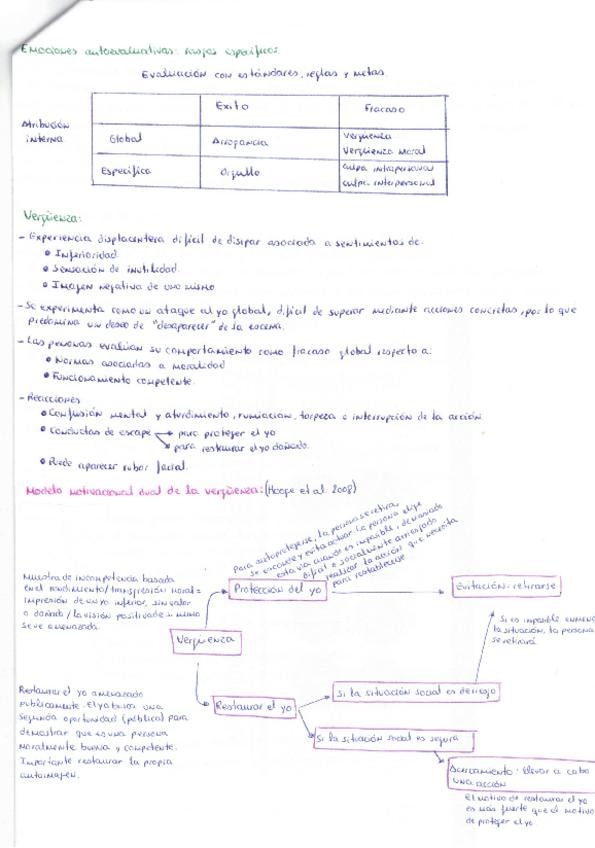 Emociones autoevaluativas: rasgos específicos.
Evaluación con estándares, reglas y metas
Éxito
Fracaso
Atribución
interna
Global
Arrogancia
Vergüenza
Vergüenza moral
Específica
Orgullo
culpa intrapersonal
culpa interpersonal
Vergüenza:
- Experiencia displacentera difícil de disipar asociada a sentimientos de:
• Inferioridad
• Sensación de inutilidad
• Imagen negativa de uno mismo
- Se experimenta como un ataque al yo global, difícil de superar mediante acciones concretas, por lo que
predomina un deseo de "desaparecer" de la escena.
- Las personas evalúan su comportamiento como fracaso global respecto a:
• Normas asociadas a moralidad
• Funcionamiento competente.
- Reacciones
• Confusión mental y aturdimiento, rumiación, torpeza e interrupción de la acción
• Conductas de escape → para proteger el yo
→ para restaurar el yo dañado.
• Puede aparecer rubor facial.
Modelo motivacional dual de la vergüenza: (Hooge et al. 2008)
Para autoprotegerse, la persona se retira,
se esconde y evita actuar. La persona elige
esta vía cuando es imposible, demasiado
difícil o socialmente arriesgado
realizar la acción que necesita
para restablecerse
Muestra de incompetencia basada
en el rendimiento/transgresión moral =
impresión de un yo inferior, sin valor
o dañado / la visión positiva de sí mismo
se ve amenazada.
Protección del yo
Evitación: retirarse
Vergüenza
Si es imposible enmend
la situación, la persona
se retirará
Restaurar el yo amenazado
públicamente. El yo busca una
segunda oportunidad (pública) para
demostrar que es una persona
moralmente buena y competente.
Importante restaurar la propia
autoimagen.
Restaurar el yo
Si la situación social es de riesgo
Si la situación social es segura
Acercamiento: llevar a cabo
una acción
El motivo de restaurar el yo
es más fuerte que el motivo
de proteger el yo.